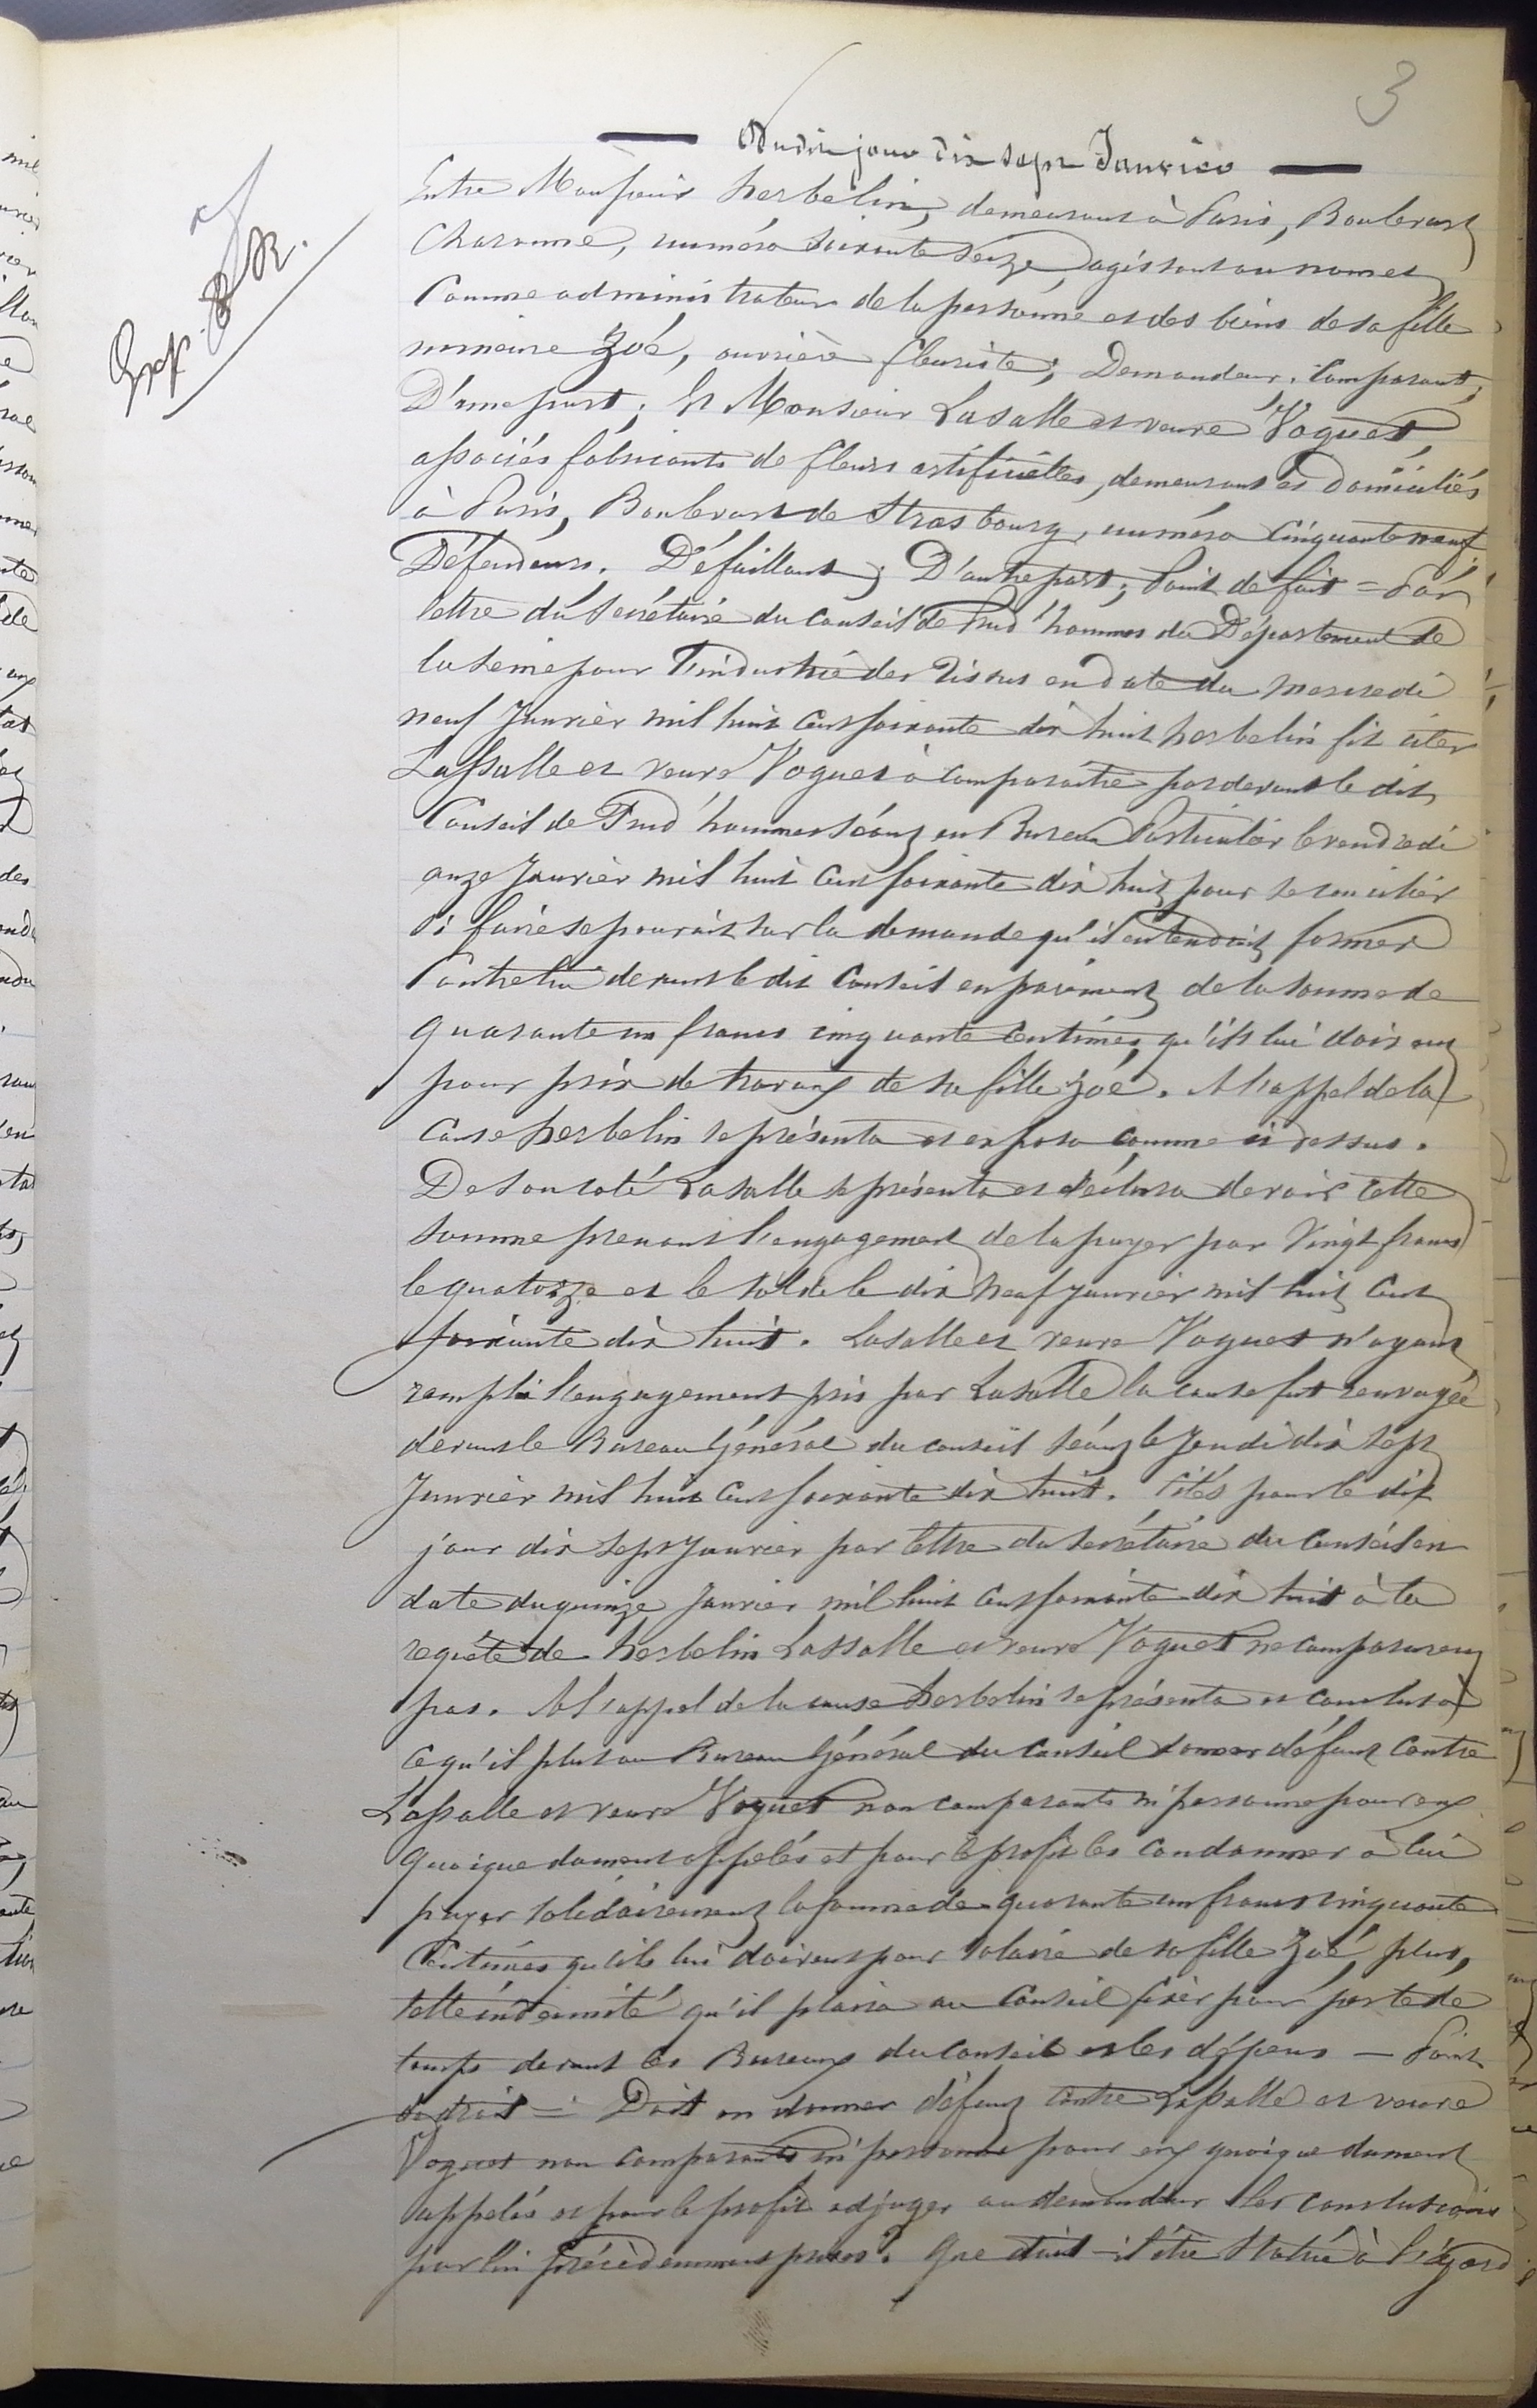 3
Dudit jour dix sept Janvier
Entre Monsieur herbelin, demeurant à Paris, Boulevart
Charonne, numéro soixante seize, agissant au nom et
Comme administrateur de la personne et des biens de sa fille
mineure Zoé, ouvrière fleuriste; Demandeur. Comparant;
D'une part; Et Monsieur Lasalle et veuve Voguet,
associés fabricants de fleurs artificielles, demeurant et domiciliés
à Paris, Boulevart de Strasbourg, numéro Cinquante neuf
Défendeurs. Défaillant; D'autre part; Point de fait = Par
lettre du secrétaire du Conseil de Prud'hommes du Département de
la seine pour l'industrie des tissus en date du mercredi
neuf Janvier mil huit cent soixante dix huit herbelin fit citer
Lassalle et veuve Voguet à comparaître par devant le dit
Conseil de Prud'hommes séant en Bureau Particulier le vendredi
onze Janvier mil huit cent soixante dix huit pour se concilier
si faire se pouvait sur la demande qu'il entendait former
Contre lui devant le dit Conseil en paiement de la somme de
quarante un francs cinquante centimes qu'ils lui doivent
pour prix de travaux de sa fille Zoé. A l'appel de la
cause herbelin se présenta et exposa comme ci dessus.
De son coté Lasalle se présenta et déclara devoir cette
somme prenant l'engagement de la payer par Vingt francs
le quatorze et le solde le dix neuf Janvier mil huit cent
soixante dix huit. Lasalle et veuve Voguet n'ayant
rempli l'engagement pris par Lasalle la cause fut renvoyée
devant le Bureau Général du conseil séant le Jeudi dix sept
Janvier mil huit cent soixante dix huit. Cités pour le dit
jour dix sept Janvier par lettre du secrétaire du Conseil en
date du quinze Janvier mil huit cent soixante dix huit à la
requête de herbelin Lassalle et veuve Voguet ne comparurent
pas. A l'appel de la cause herbelin se présenta et conclut à
ce qu'il plut au Bureau Général du Conseil donner défaut contre
Lassalle et veuve Voguet non comparants ni personne pour eux
quoique dument appelés et pour le profit les condamner à lui
payer solidairement la somme de quarante un francs cinquante
Centimes qu'ils lui doivent pour salaire de sa fille Zoé, plus,
telle indemnité qu'il plaira au Conseil fixer pour perte de
temps devant les Bureaux du Conseil et les dépens — Point
de droit = Doit on donner défaut contre Lassalle et veuve
Voguet non comparants ni personne pour eux quoique dument
appelés et pour le profit adjuger au demandeur les conclusions
par lui précédemment prises? Que doit-il être statué à l'égard